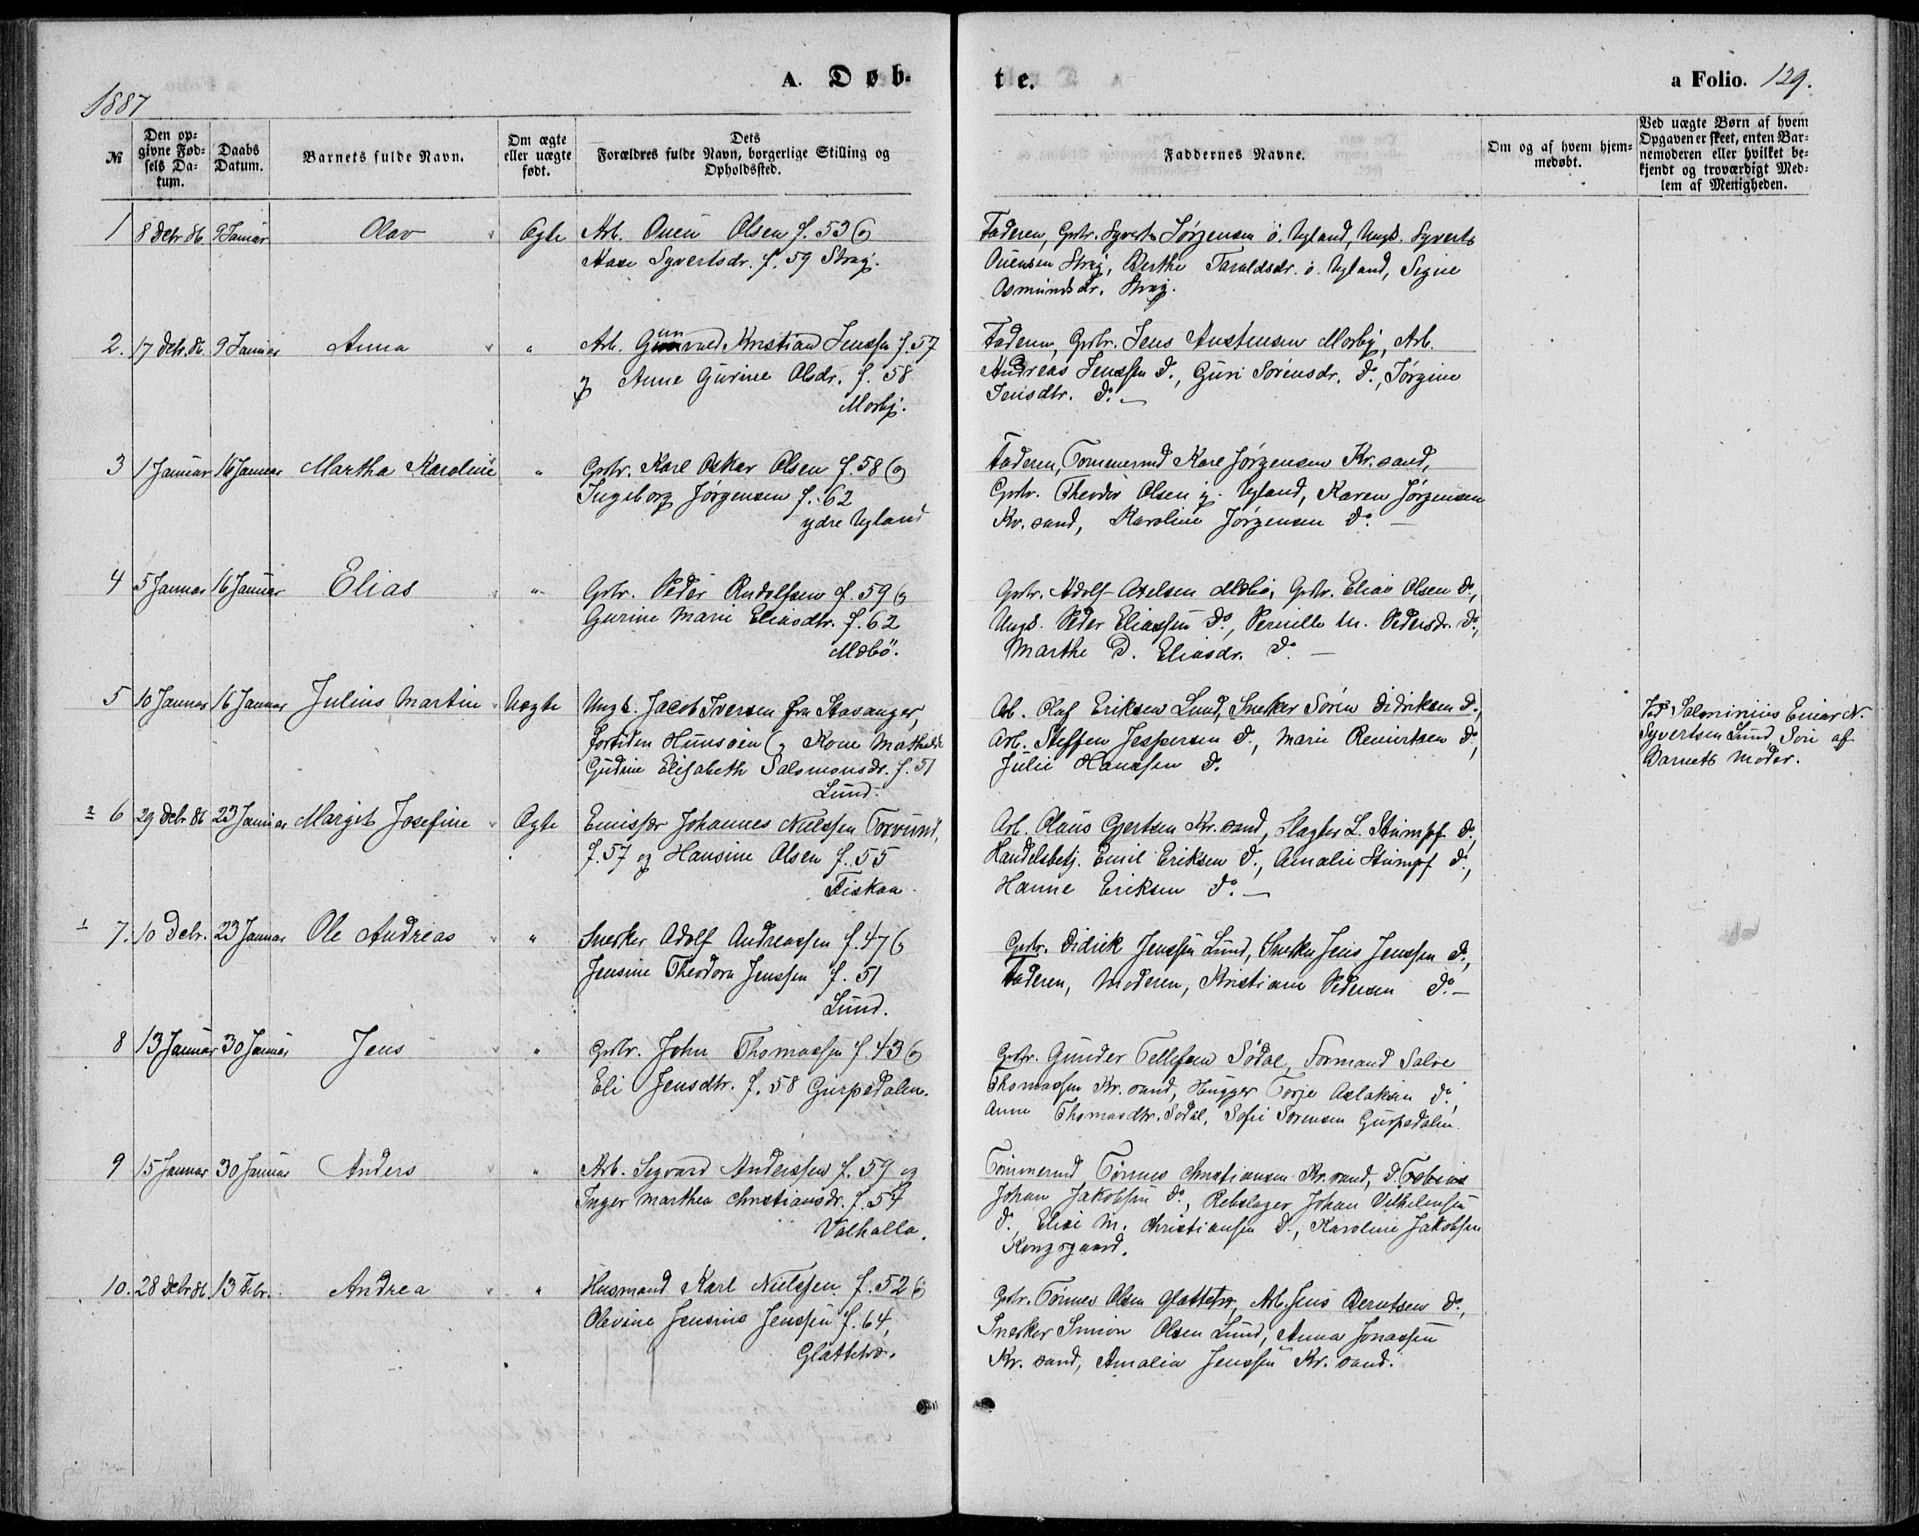 1887
A. Døb-
te.
a Folio. 129.
№
Den op-
givne Fød-
sels Da-
tum.
Daabs
Datum.
Barnets fulde Navn.
Om ægte
eller uægte
født.
Dets
Forældres fulde Navn, borgerlige Stilling og
Opholdssted.
Faddernes Navne.
Om og af hvem hjem-
medøbt.
Ved uægte Børn af hvem
Opgaven er skeet, enten Bar-
nemoderen eller hvilket be-
kjendt og troværdigt Med-
lem af Menigheden.
1 8 Debr 86 9 Januar Olav Ægte Arb. Ouen Olsen f. 53 og
Aase Syvertsdr. f. 59 Straj.
Faderen, Grbr. Syvert Jørgensen ö. Ugland, Ungk. Syvert
Ouensen Straj, Berthe Taraldsdr. ö. Ugland, Signe
Osmundsdr. Straj.
2. 17 Debr. 86 9 Januar Anna " Arb. Gunvald Kristian Jenssen f. 57
og Anne Gurine Olsdr. f. 58
Mosbj.
Faderen, Grbr. Jens Austensen Mosbj, Arb.
Andreas Jenssen do, Guri Sørensdr. do, Jørgine
Jensdtr. do. —
3 1 Januar 16 Januar Martha Karoline " Grbr. Karl Oskar Olsen f. 58 og
Ingeborg Jørgensen f. 62
ydre Ugland
Faderen, Tømmermd Karl Jørgensen Kr.sand,
Grbr. Theodor Olsen y. Ugland, Karen Jørgensen
Kr. sand, Karoline Jørgensen do. —
4 5 Januar 16 Januar Elias " Grbr. Peder Rudolfsen f. 59 og
Gurine Marie Eliasdtr. f. 62
Mæbö.
Grbr. Adolf Axelsen Mæbö, Grbr. Elias Olsen do,
Ungk. Peder Eliassen do, Pernille M. Pedersdr. do,
Marthe D. Eliasdr. do —
5 10 Januar 16 Januar Julius Martin Uægte Ungk. Jacob Iversen fra Stavanger,
fortiden Hunsöen og Kone Mathilde
Gudine Elisabeth Salomonsdr. f. 51
Lund.
Arb. Olaf Eriksen Lund, Snekker Sören Didriksen do,
Arb. Steffen Jespersen do, Marie Reiertsen do,
Julie Hanssen do.
Ved Salominius Einar N.
Syvertsen Lund Sön af
Barnets Moder.
2 6 29 Debr 86 23 Januar Margit Josefine Ægte Emissær Johannes Nielssen Torvund,
f. 57 og Hansine Olsen f. 55
Fiskaa.
Arb. Claus Gjertsen Kr.sand, Slagter L. Stumpf do,
Handelsbetj. Emil Eriksen do, Amalie Stumpf do,
Hanne Eriksen do. —
1 7. 10 Debr. 23 Januar Ole Andreas " Snekker Adolf Andreassen f. 47 og
Jensine Theodora Jenssen f. 51
Lund.
Grbr. Didrik Jenssen Lund, Snekker Jens Jenssen do,
Faderen, Moderen, Kristiane Pedersen do. —
8 13 Januar 30 Januar Jens " Grbr. John Thomassen f. 43 og
Eli Jensdtr. f. 58 Gurpedalen.
Grbr. Gunder Tellefsen Södal, Formand Salve
Thomassen Kr. sand, Hugger Torje Aslaksen do,
Anne Thomasdtr. Södal, Sofie Sörensen Gurpedalen.
9 15 Januar 30 Januar Anders " Arb. Sigvard Anderssen f. 59 og
Inger Marthea Christiansdr. f. 57
Valhalla.
Tømmermd Tønnes Christiansen Kr.sand, do Tobias
Johan Jakobsen do, Rebslager Johan Vilhelmsen
do, Elise M. Christiansen do, Karoline Jakobsen
Kongsgaard.
10. 28 Debr 86. 13 Febr. Andrea " Husmand Karl Nielssen f. 52 og
Olevine Jensine Jenssen f. 64,
Glattetræ.
Grbr. Tønnes Olsen Glattetræ, Arb. Jens Berntsen do,
Snekker Simon Olsen Lund, Anna Jonassen
Kr. sand, Amalia Jenssen Kr. sand.